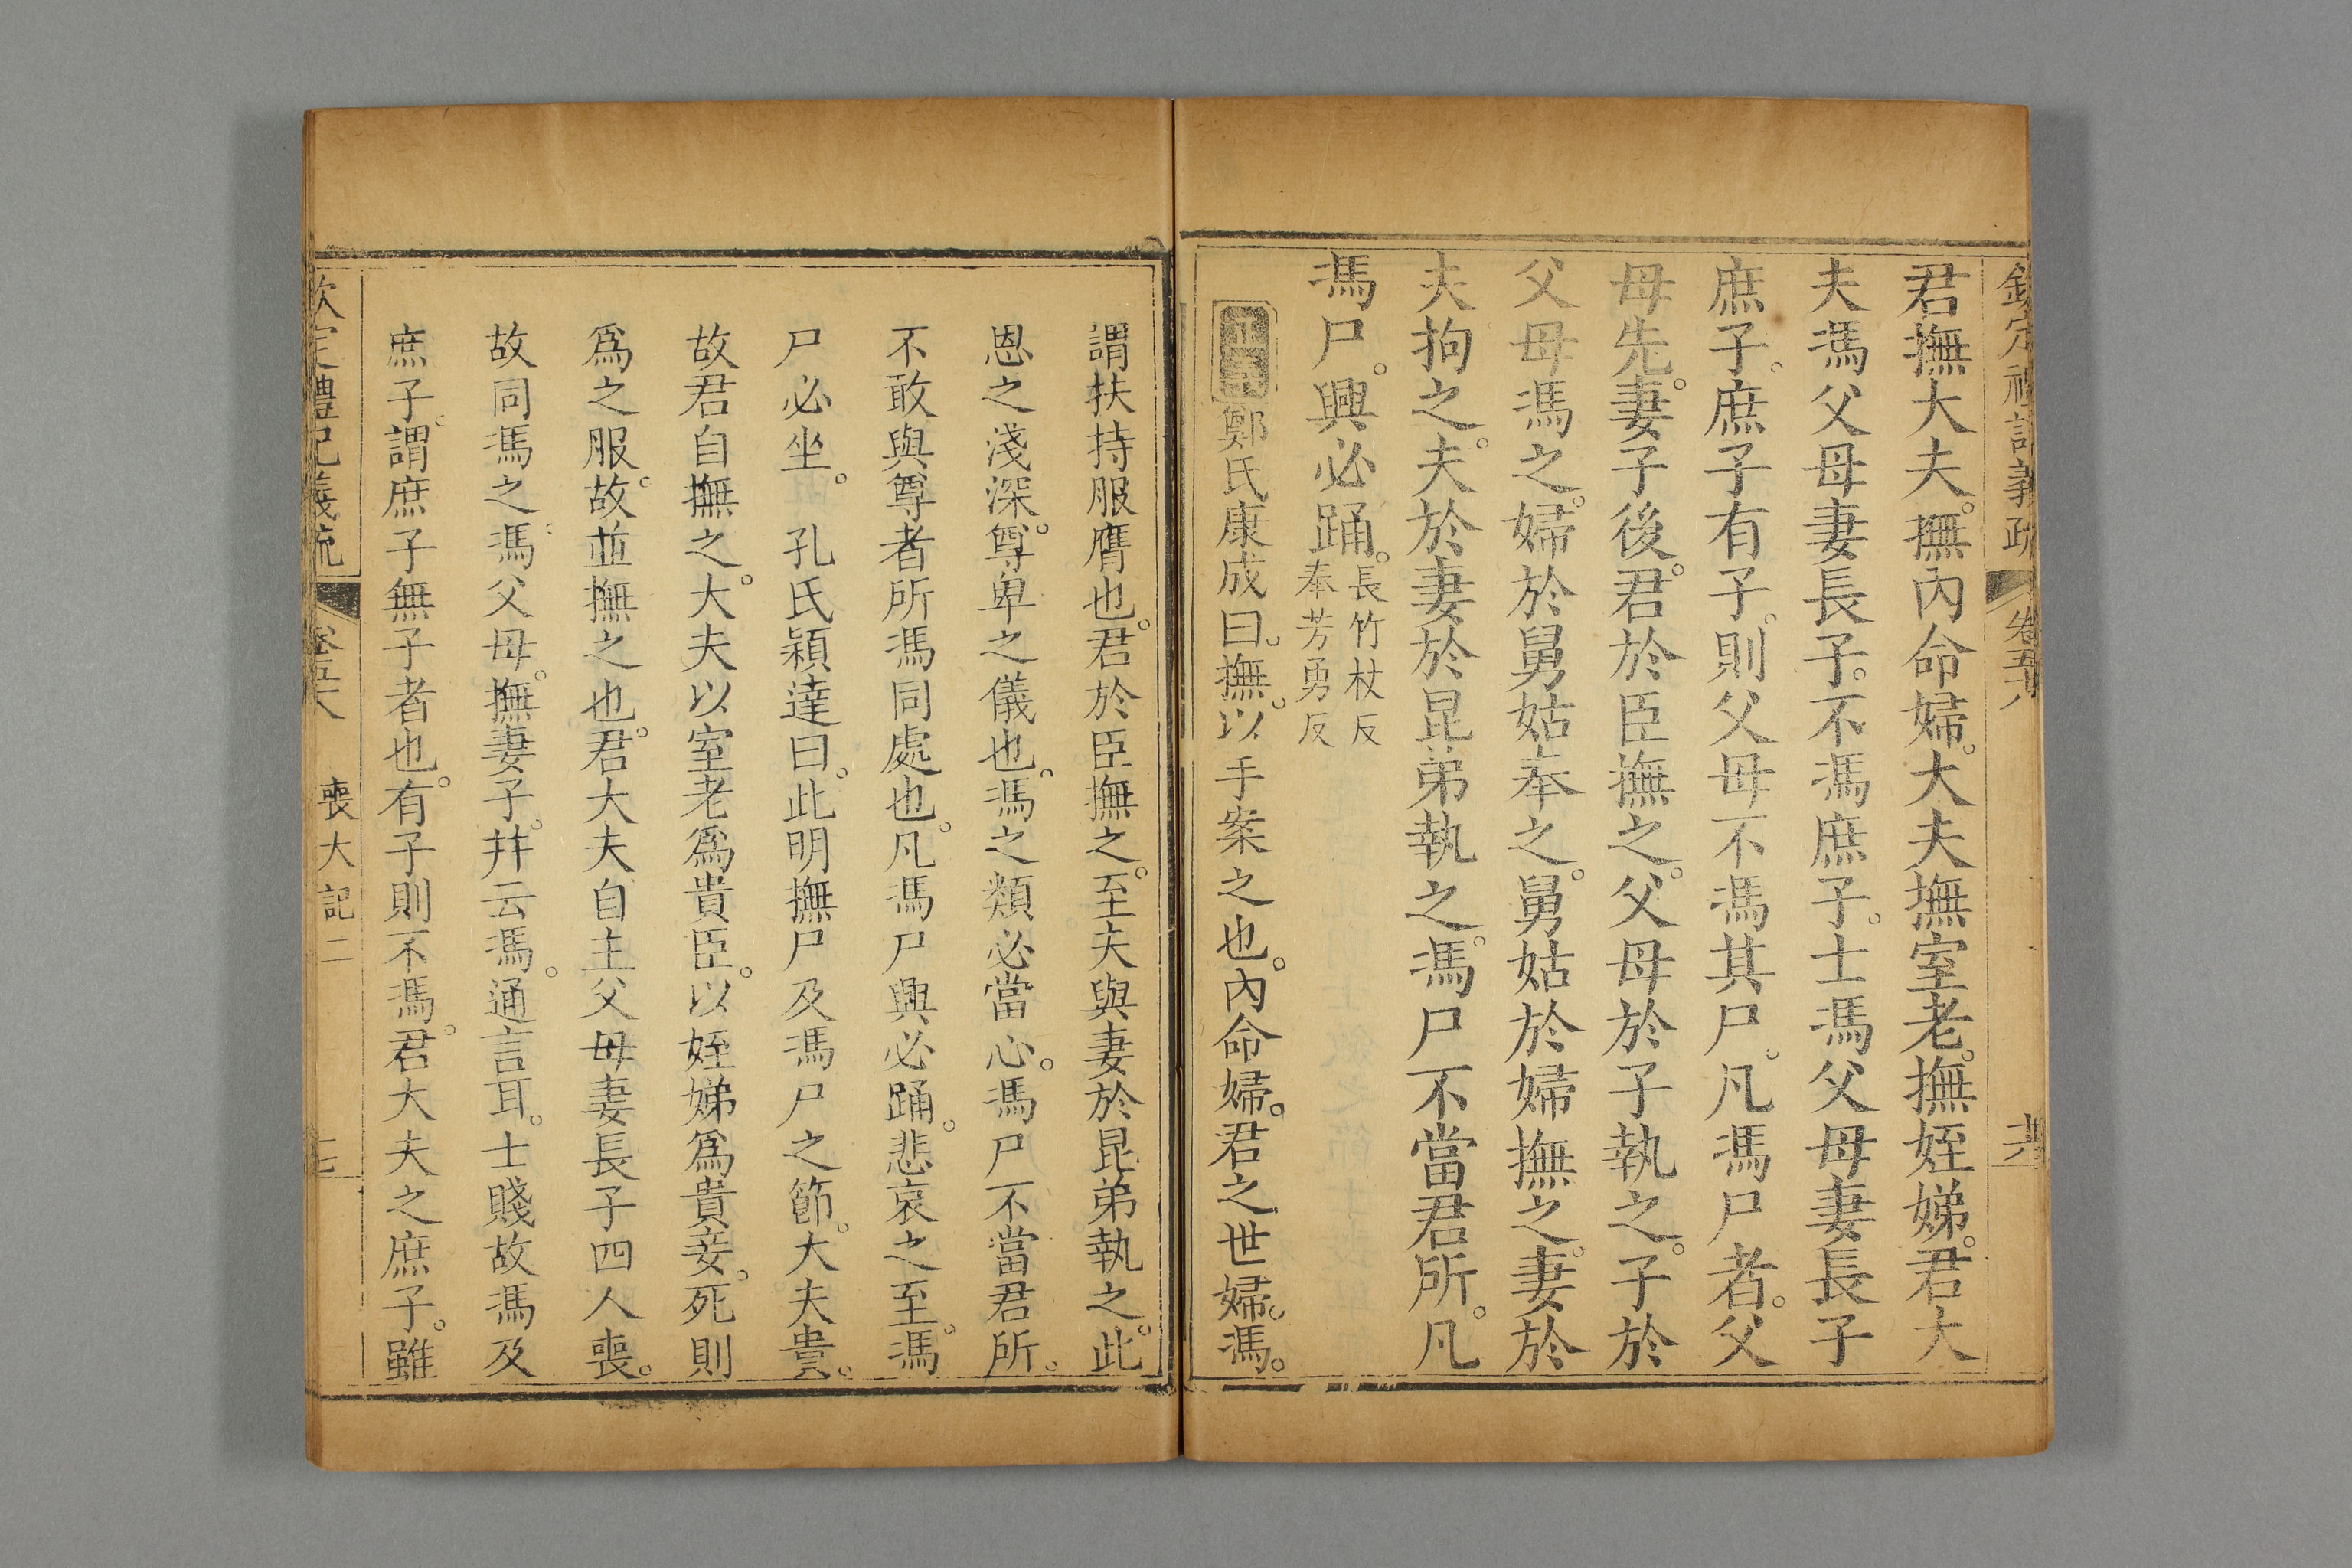 欽定禮記義疏 卷五十八
君撫大夫。撫內命婦。大夫撫室老。撫姪娣。君大
夫馮父母妻長子。不馮庶子。士馮父母妻長子
庶子。庶子有子。則父母不馮其尸。凡馮尸者。父
母先。妻子後。君於臣撫之。父母於子執之。子於
父母馮之。婦於舅姑奉之。舅姑於婦撫之。妻於
夫拘之。夫於妻於昆弟執之。馮尸不當君所。凡
馮尸。興必踊。長竹杖反
奉芳勇反
正義鄭氏康成曰。撫。以手案之也。內命婦。君之世婦。馮。
謂扶持服膺也。君於臣撫之。至夫與妻於昆弟執之。此
恩之淺深。尊卑之儀也。馮之類必當心。馮尸不當君所。
不敢與尊者所馮同處也。凡馮尸興必踊。悲哀之至。馮
尸必坐。 孔氏穎達曰。此明撫尸及馮尸之節。大夫貴。
故君自撫之。大夫以室老為貴臣。以姪娣為貴妾。死則
為之服。故並撫之也。君大夫自主父母妻長子四人喪。
故同馮之。馮父母。撫妻子。幷云馮。通言耳。士賤故馮及
庶子。謂庶子無子者也。有子則不馮。君大夫之庶子。雖
欽定禮記義疏 卷五十八 喪大記二